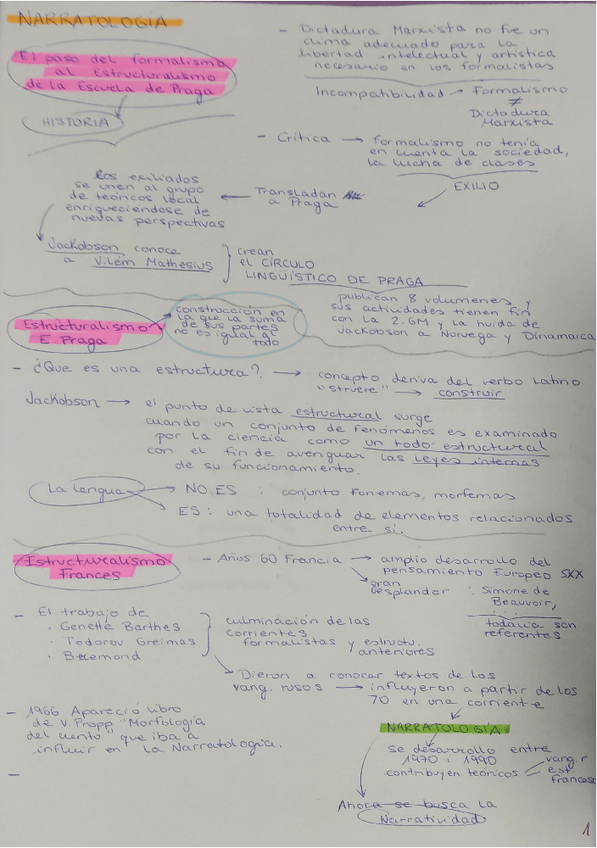 NARRATOLOGÍA
El paso del formalismo
al Estructuralismo
de la Escuela de Praga
HISTORIA
- Dictadura Marxista no fue un
clima adecuado para la
libertad intelectual y artística
necesario en los formalistas
Incompatibilidad → Formalismo
≠
Dictadura
Marxista
- Crítica → formalismo no tenía
en cuenta la sociedad,
la lucha de clases
EXILIO
Transladan
a Praga
Los exiliados
se unen al grupo
de teóricos local
enriqueciendose de
nuevas perspectivas
Jackobson conoce
a Vilém Mathesius
crean
el CÍRCULO
LINGÜÍSTICO DE PRAGA
publican 8 volumenes y
sus actividades tienen fin
con la 2.GM y la huida de
Jackobson a Noruega y Dinamarca
Estructuralismo
E. Praga
construcción en
la que la suma
de sus partes
no es igual al
todo
- ¿Que es una estructura? → concepto deriva del verbo Latino
"struere" → construir
Jackobson → el punto de vista estructural surge
cuando un conjunto de fenómenos es examinado
por la ciencia como un todo estructural
con el fin de averiguar las leyes internas
de su funcionamiento.
La lengua → NO ES : conjunto fonemas, morfemas
ES : una totalidad de elementos relacionados
entre sí.
Estructuralismo
Frances
- Años 60 Francia → amplio desarrollo del
pensamiento Europeo SXX
gran
esplandor : Simone de
Beauvoir, ...
todavía son
referentes
- El trabajo de
· Genette Barthes
· Todorov Greimas
· Bremond
culminación de las
corrientes
formalistas y estructu.
anteriores
Dieron a conocar textos de los
vang. rusos → influyeron a partir de los
70 en una corriente
- 1966 Apareció libro
de V. Propp "Morfología
del cuento" que iba a
influir en la Narratología.
NARRATOLOGÍA
se desarrollo entre
1970 i 1990
contribuyen teóricos
vang. r
est.
frances
-
Ahora se busca la
Narratividad
1